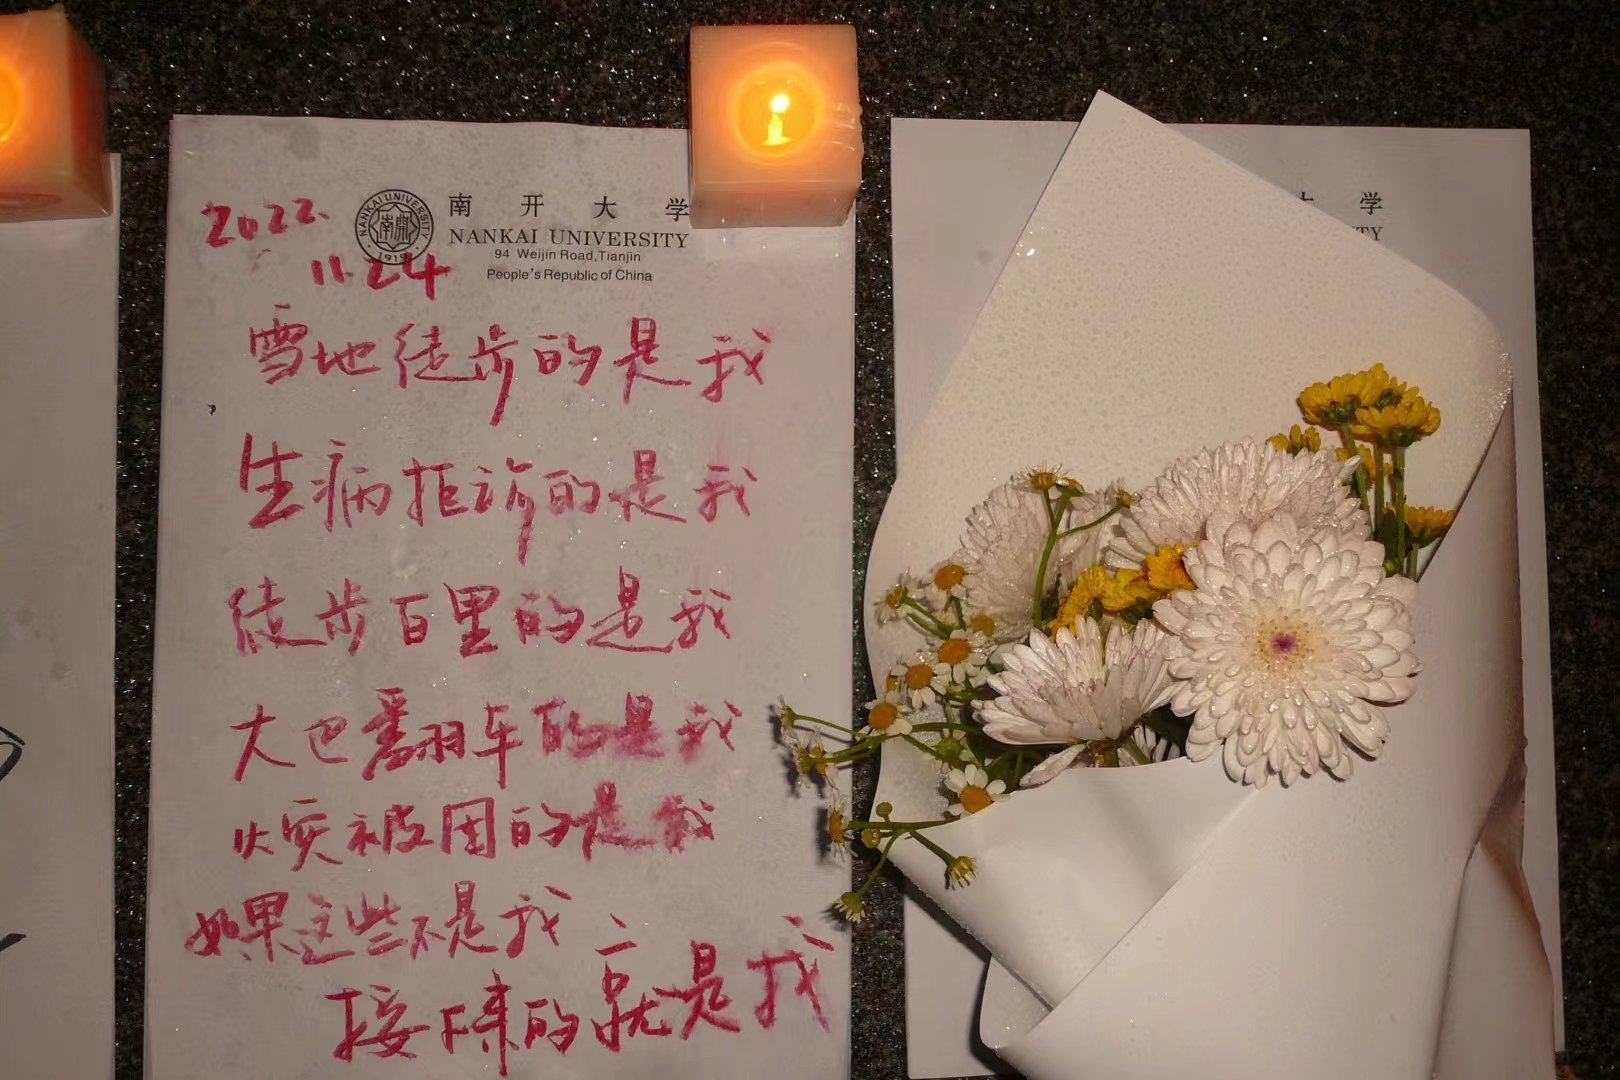 2022.
11.24
南 开 大 学
NANKAI UNIVERSITY
94 Weijin Road, Tianjin
People's Republic of China
NANKAI UNIVERSITY
南開
1919
雪地徒步的是我
生病拒诊的是我
徒步百里的是我
大巴翻车的是我
火灾被困的是我
如果这些不是我
接下来的就是我
大 学
TY